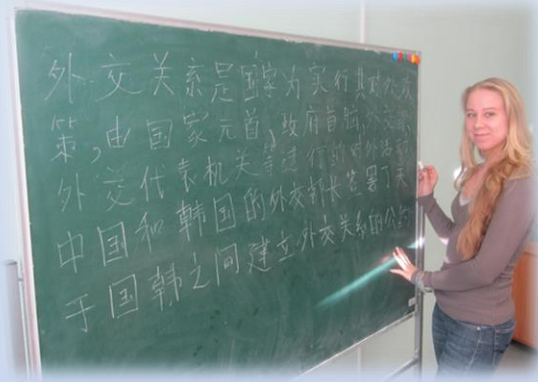 外交关系是国字为实行其对外政
策,由国家元首,政府首脑,外交部,
外交代表机关等进行的对外活动
中国和韩国的外交部长签署了关
于国韩之间建立外交关系的公约